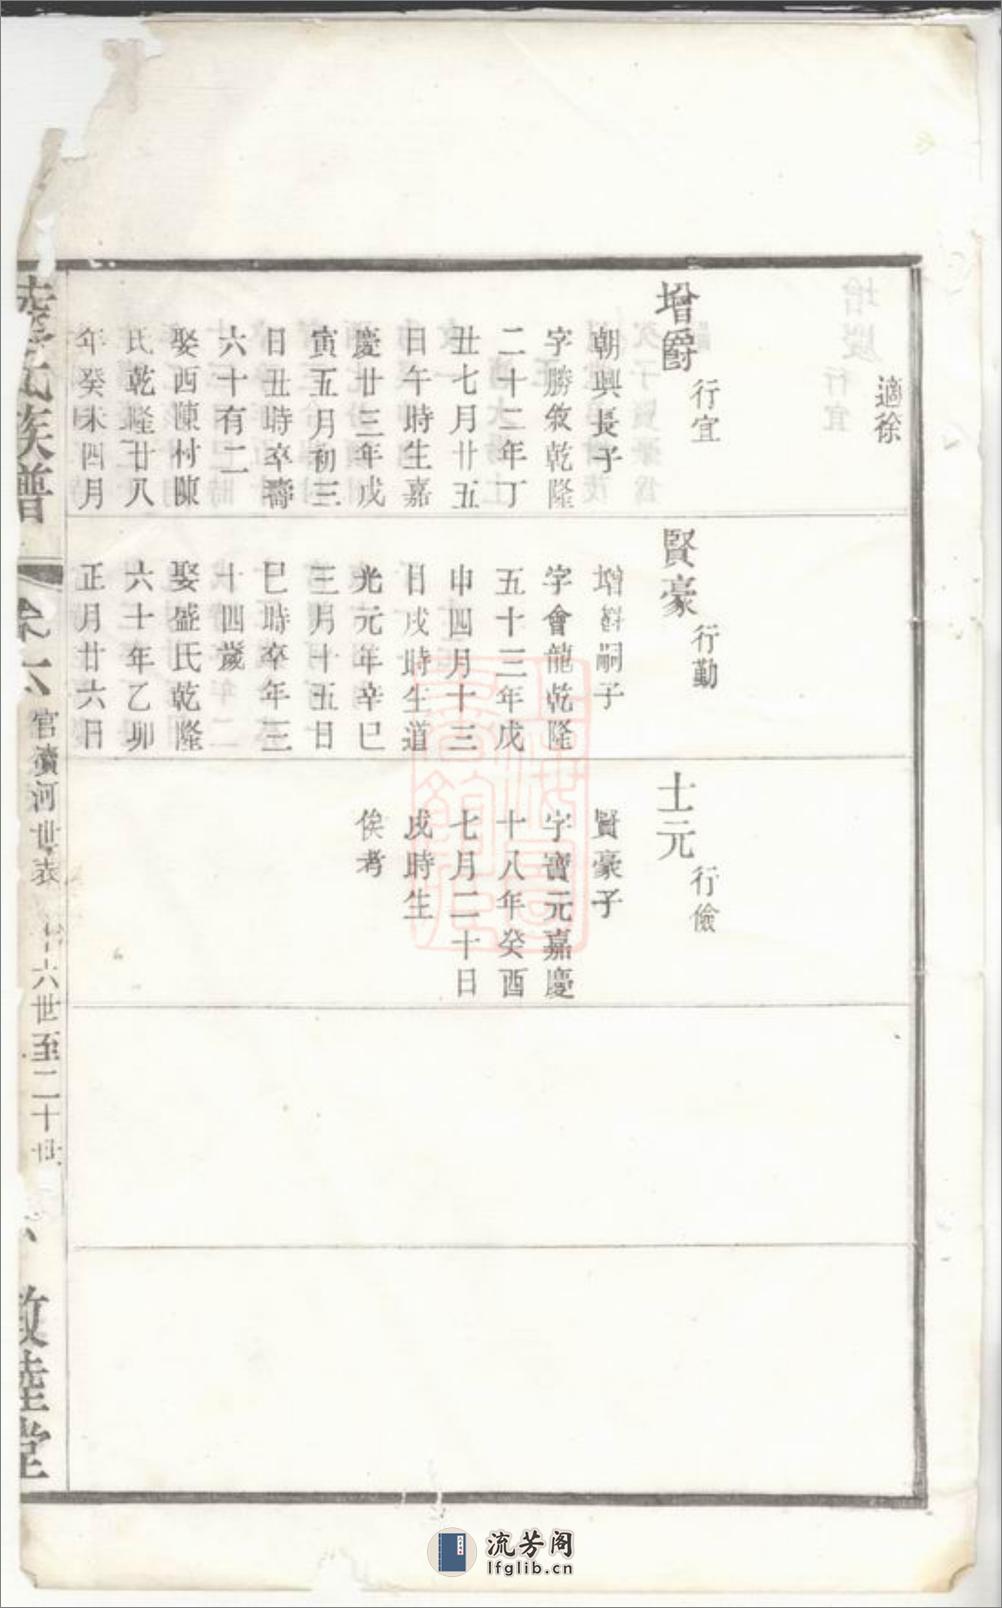 適徐
增爵
行宜
朝興長子
字勝斂乾隆
二十二年丁
丑七月廿五
日午時生嘉
慶廿三年戊
寅五月初三
日丑時卒壽
六十有二
娶西陳村陳
氏乾隆廿八
年癸未四月
賢豪
行勤
增爵嗣子
字會龍乾隆
五十三年戊
申四月十三
日戌時生道
光元年辛巳
三月十五日
巳時卒年三
十四歲
娶盛氏乾隆
六十年乙卯
正月廿六日
士元
行儉
賢豪子
字寶元嘉慶
十八年癸酉
七月二十日
戌時生
俟考
氏族譜
卷六
官瀆河世表
十六世至二十世
敦睦堂
流芳阁
lfglib.cn